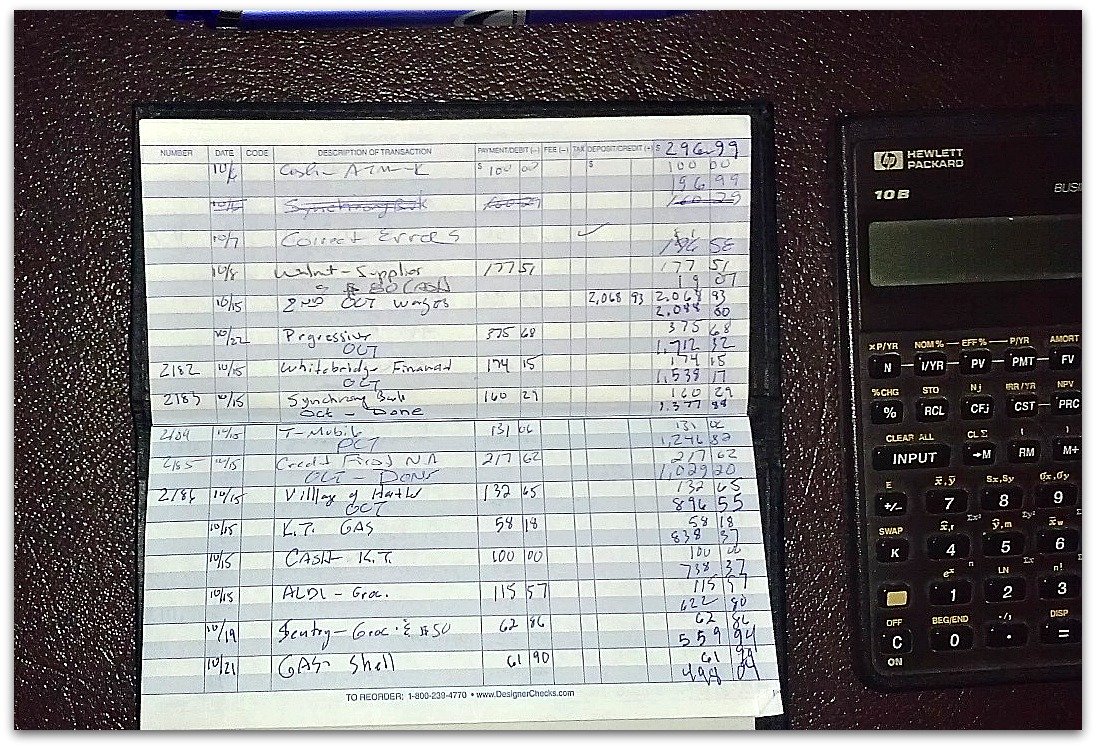 hp HEWLETT PACKARD
10B BUSI
NUMBER DATE CODE DESCRIPTION OF TRANSACTION PAYMENT/DEBIT (–) FEE (–) TAX DEPOSIT/CREDIT (+) $ 296 99
$ 100 00 $ 100 00
196 99
Synchrony Bank 160 29 160 29
10/7 Correct Errors ✓
10/8 Supplies 177 51 177 51
$80 CASH 19 07
10/15 2ND OCT Wages 2,068 93 2,068 93
2,088 00
10/22 Prgressive 375 68 375 68
OCT 1,712 32
2182 10/15 Whitebridge Financial 174 15 174 15
OCT 1,538 17
2183 10/15 Synchrony Bank 160 29 160 29
Oct - Done 1,377 88
10/15 T-Mobile 131 06 131 06
OCT 1,246 82
2185 10/15 Credit First NA 217 62 217 62
OCT - DONE 1,029 20
2186 10/15 Village of 132 65 132 65
OCT 896 55
10/15 K.T. GAS 58 18 58 18
838 37
10/15 CASH K.T. 100 00 100 00
738 37
10/15 ALDI - Groc. 115 57 115 57
622 80
10/19 Sentry - Groc. & $50 62 86 62 86
559 94
10/21 GAS Shell 61 90 61 90
498 04
TO REORDER: 1-800-239-4770 • www.DesignerChecks.com
×P/YR NOM% EFF% P/YR AMORT
N I/YR PV PMT FV
%CHG STO Nj IRR/YR NPV
% RCL CFj CST PRC
CLEAR ALL CLΣ ( )
INPUT →M RM M+
E x̄,ȳ Sx,Sy σx,σy
+/- 7 8 9
SWAP x̂,r ŷ,m x̄w
K 4 5 6
eˣ LN n!
1 2 3
OFF BEG/END DISP
C 0 · =
ON